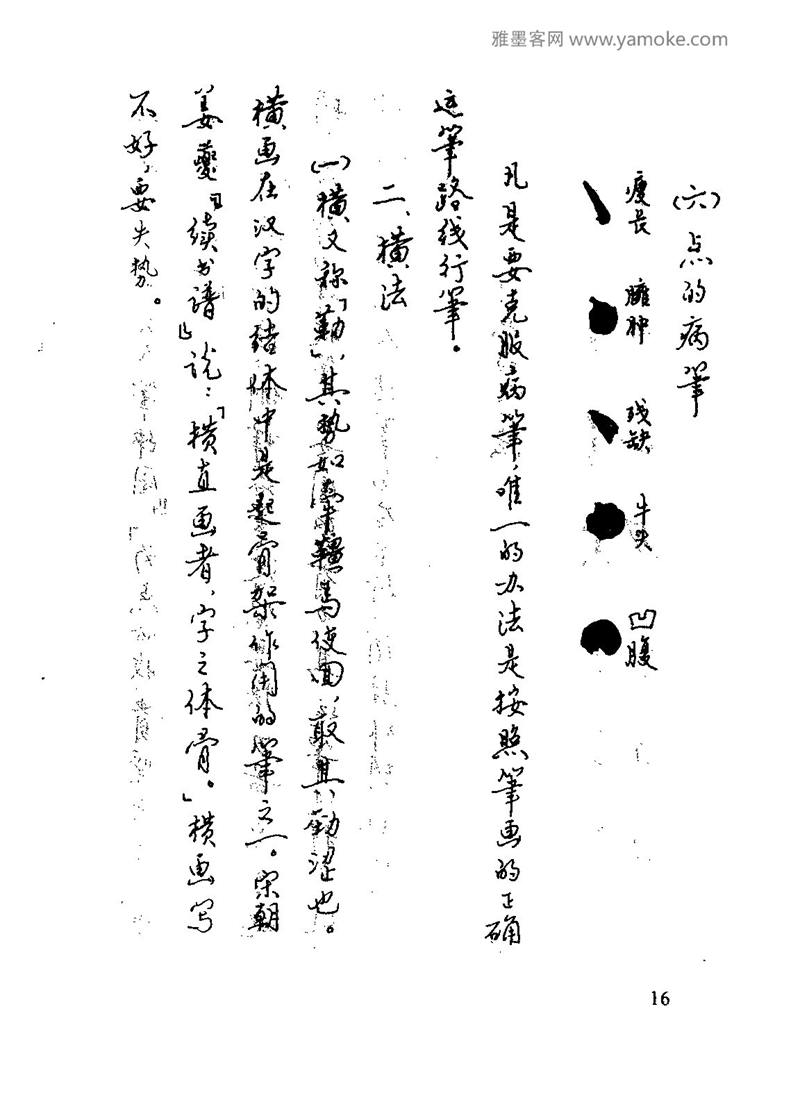 雅墨客网 www.yamoke.com
(六)点的病筆
瘦长 臃肿 残缺 牛头 凹腹
凡是要克服病筆,唯一的办法是按照筆画的正确
这筆路线行筆。
二、横法
(一)横又称「勒」,其势如 使回,取其劲涩也。
横画在汉字的结体中是起骨架作用的筆之一。宋朝
姜夔『续书谱』说:「横直画者、字之体骨。」横画写
不好,要失势。
16